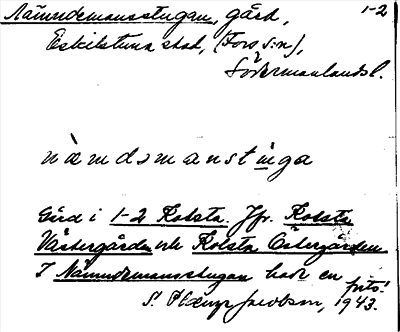 Nämndemansstugan, gård, 1-2
Eskilstuna stad, (Fors s:n),
Södermanlands l.
nä̀mdsmanstinga
Gård i 1-2 Kolsta. Jfr. Kolsta
Västergården och Kolsta Östergården
I Nämndemansstugan hade en
S. Jacobson, foto! 1943.